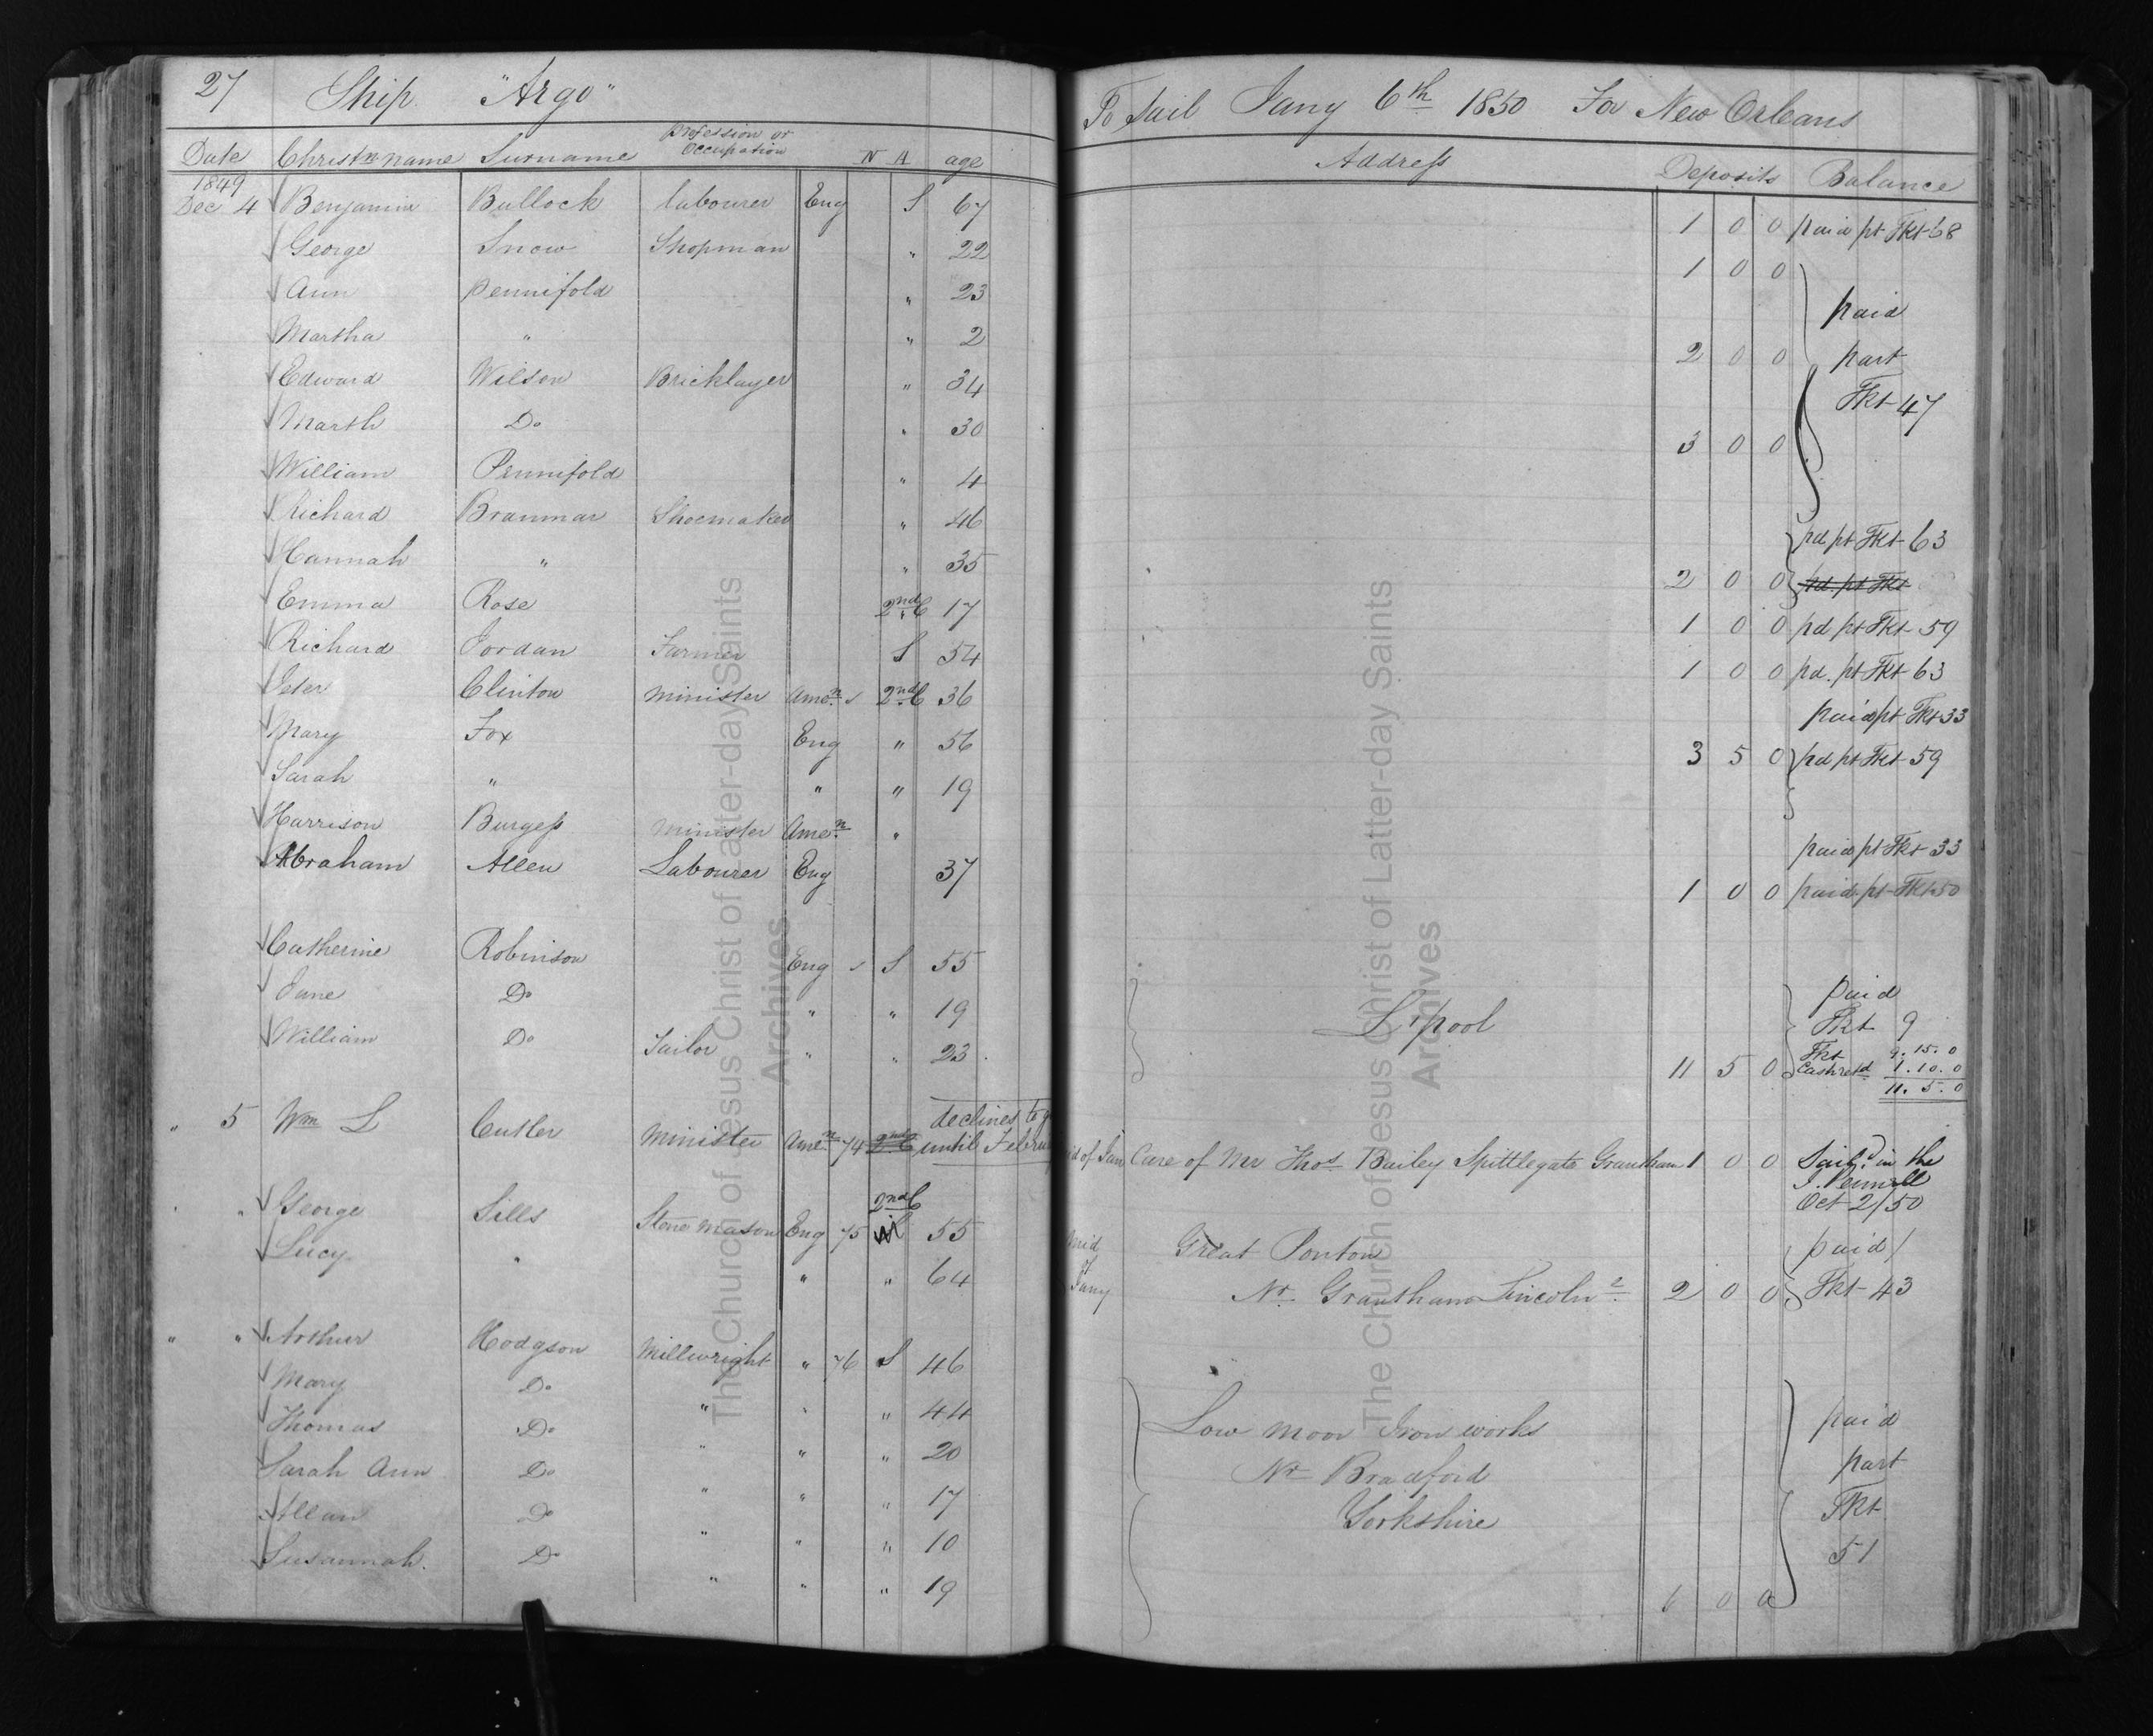 27 Ship "Argo"
Date Christn name Surname Profession or Occupation N A age
1849
Dec 4 Benjamin Bullock labourer Eng S 67
George Snow Shopman " 22
Ann Pennifold " 23
Martha " " 2
Edward Wilson Bricklayer " 34
Marth Do " 30
William Pennifold " 4
Richard Branmar Shoemaker " 46
Hannah " " 35
Emma Rose 2nd C 17
Richard Jordan Farmer S 54
Peter Clinton minister Amen 2nd C 36
Mary Fox Eng " 56
Sarah " " " 19
Harrison Burgess minister Amen "
Abraham Allen Labourer Eng 37
Catherine Robinson Eng S 55
Jane Do " " 19
William Do Tailor " " 23
declines to go
" 5 Wm L Cutler Minister Amen 74 2nd C until Febru
2nd C
" " George Sills Stone mason Eng 75 55
Lucy " " " 64
" " Arthur Hodgson Millwright " 76 S 46
Mary Do " " " 44
Thomas Do " " " 20
Sarah Ann Do " " " 17
Allan Do " " " 10
Susannah Do " " " 19
To Sail Jany 6th 1850 For New Orleans
Address Deposits Balance
1 0 0 paid pt Tkt 68
1 0 0
paid
2 0 0 part
Tkt 47
3 0 0
pd pt Tkt 63
2 0 0 pd. pt Tkt
1 0 0 pd pt Tkt 59
1 0 0 pd. pt Tkt 63
paid pt Tkt 33
3 5 0 pd pt Tkt 59
paid pt Tkt 33
1 0 0 paid pt Tkt 50
paid
L'pool Tkt 9
Tkt 9. 15. 0
11 5 0 Cash retd 1. 10. 0
11. 5. 0
Care of Mr Thos Bailey Spittlegate Grantham 1 0 0 Sail'd in the
J. Pennell
Oct 2/50
Mid of Jany
Great Ponton paid
Nr Grantham Lincoln 2 0 0 Tkt 43
Low Moor Iron works paid
Nr Bradford part
Yorkshire Tkt
51
6 0 0
The Church of Jesus Christ of Latter-day Saints
Archives
The Church of Jesus Christ of Latter-day Saints
Archives